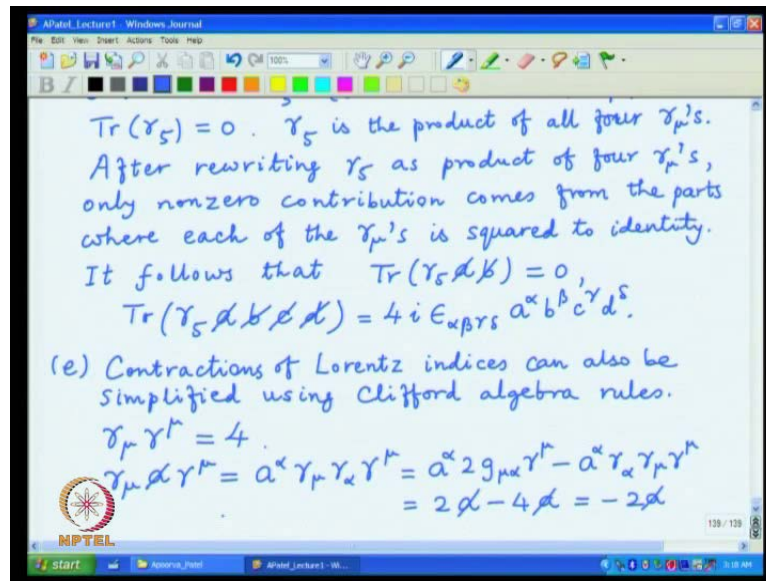 APatel_Lecture1 - Windows Journal
File Edit View Insert Actions Tools Help
100%
B I
Tr(γ₅) = 0 . γ₅ is the product of all four γ_μ's.
After rewriting γ₅ as product of four γ_μ's,
only nonzero contribution comes from the parts
where each of the γ_μ's is squared to identity.
It follows that Tr(γ₅ a̸ b̸) = 0,
Tr(γ₅ a̸ b̸ c̸ d̸) = 4 i ε_αβγδ a^α b^β c^γ d^δ.
(e) Contractions of Lorentz indices can also be
simplified using Clifford algebra rules.
γ_μ γ^μ = 4 .
γ_μ a̸ γ^μ = a^α γ_μ γ_α γ^μ = a^α 2 g_μα γ^μ − a^α γ_α γ_μ γ^μ
= 2 a̸ − 4 a̸ = −2 a̸
139 / 139
NPTEL
start Apoorva_Patel APatel_Lecture1 - Wi... 3:18 AM